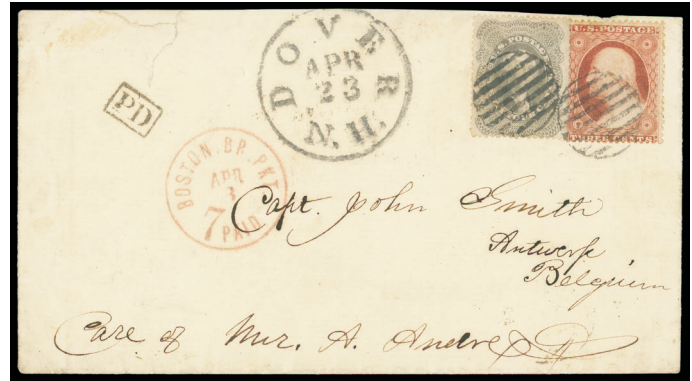 DOVER
APR
23
N.H.
U.S. POSTAGE
U.S. POSTAGE
THREE CENTS
PD
BOSTON. BR. PKT.
APR
7 PAID
Capt. John Smith
Antwerp
Belgium
Care of Mr. A. Andre